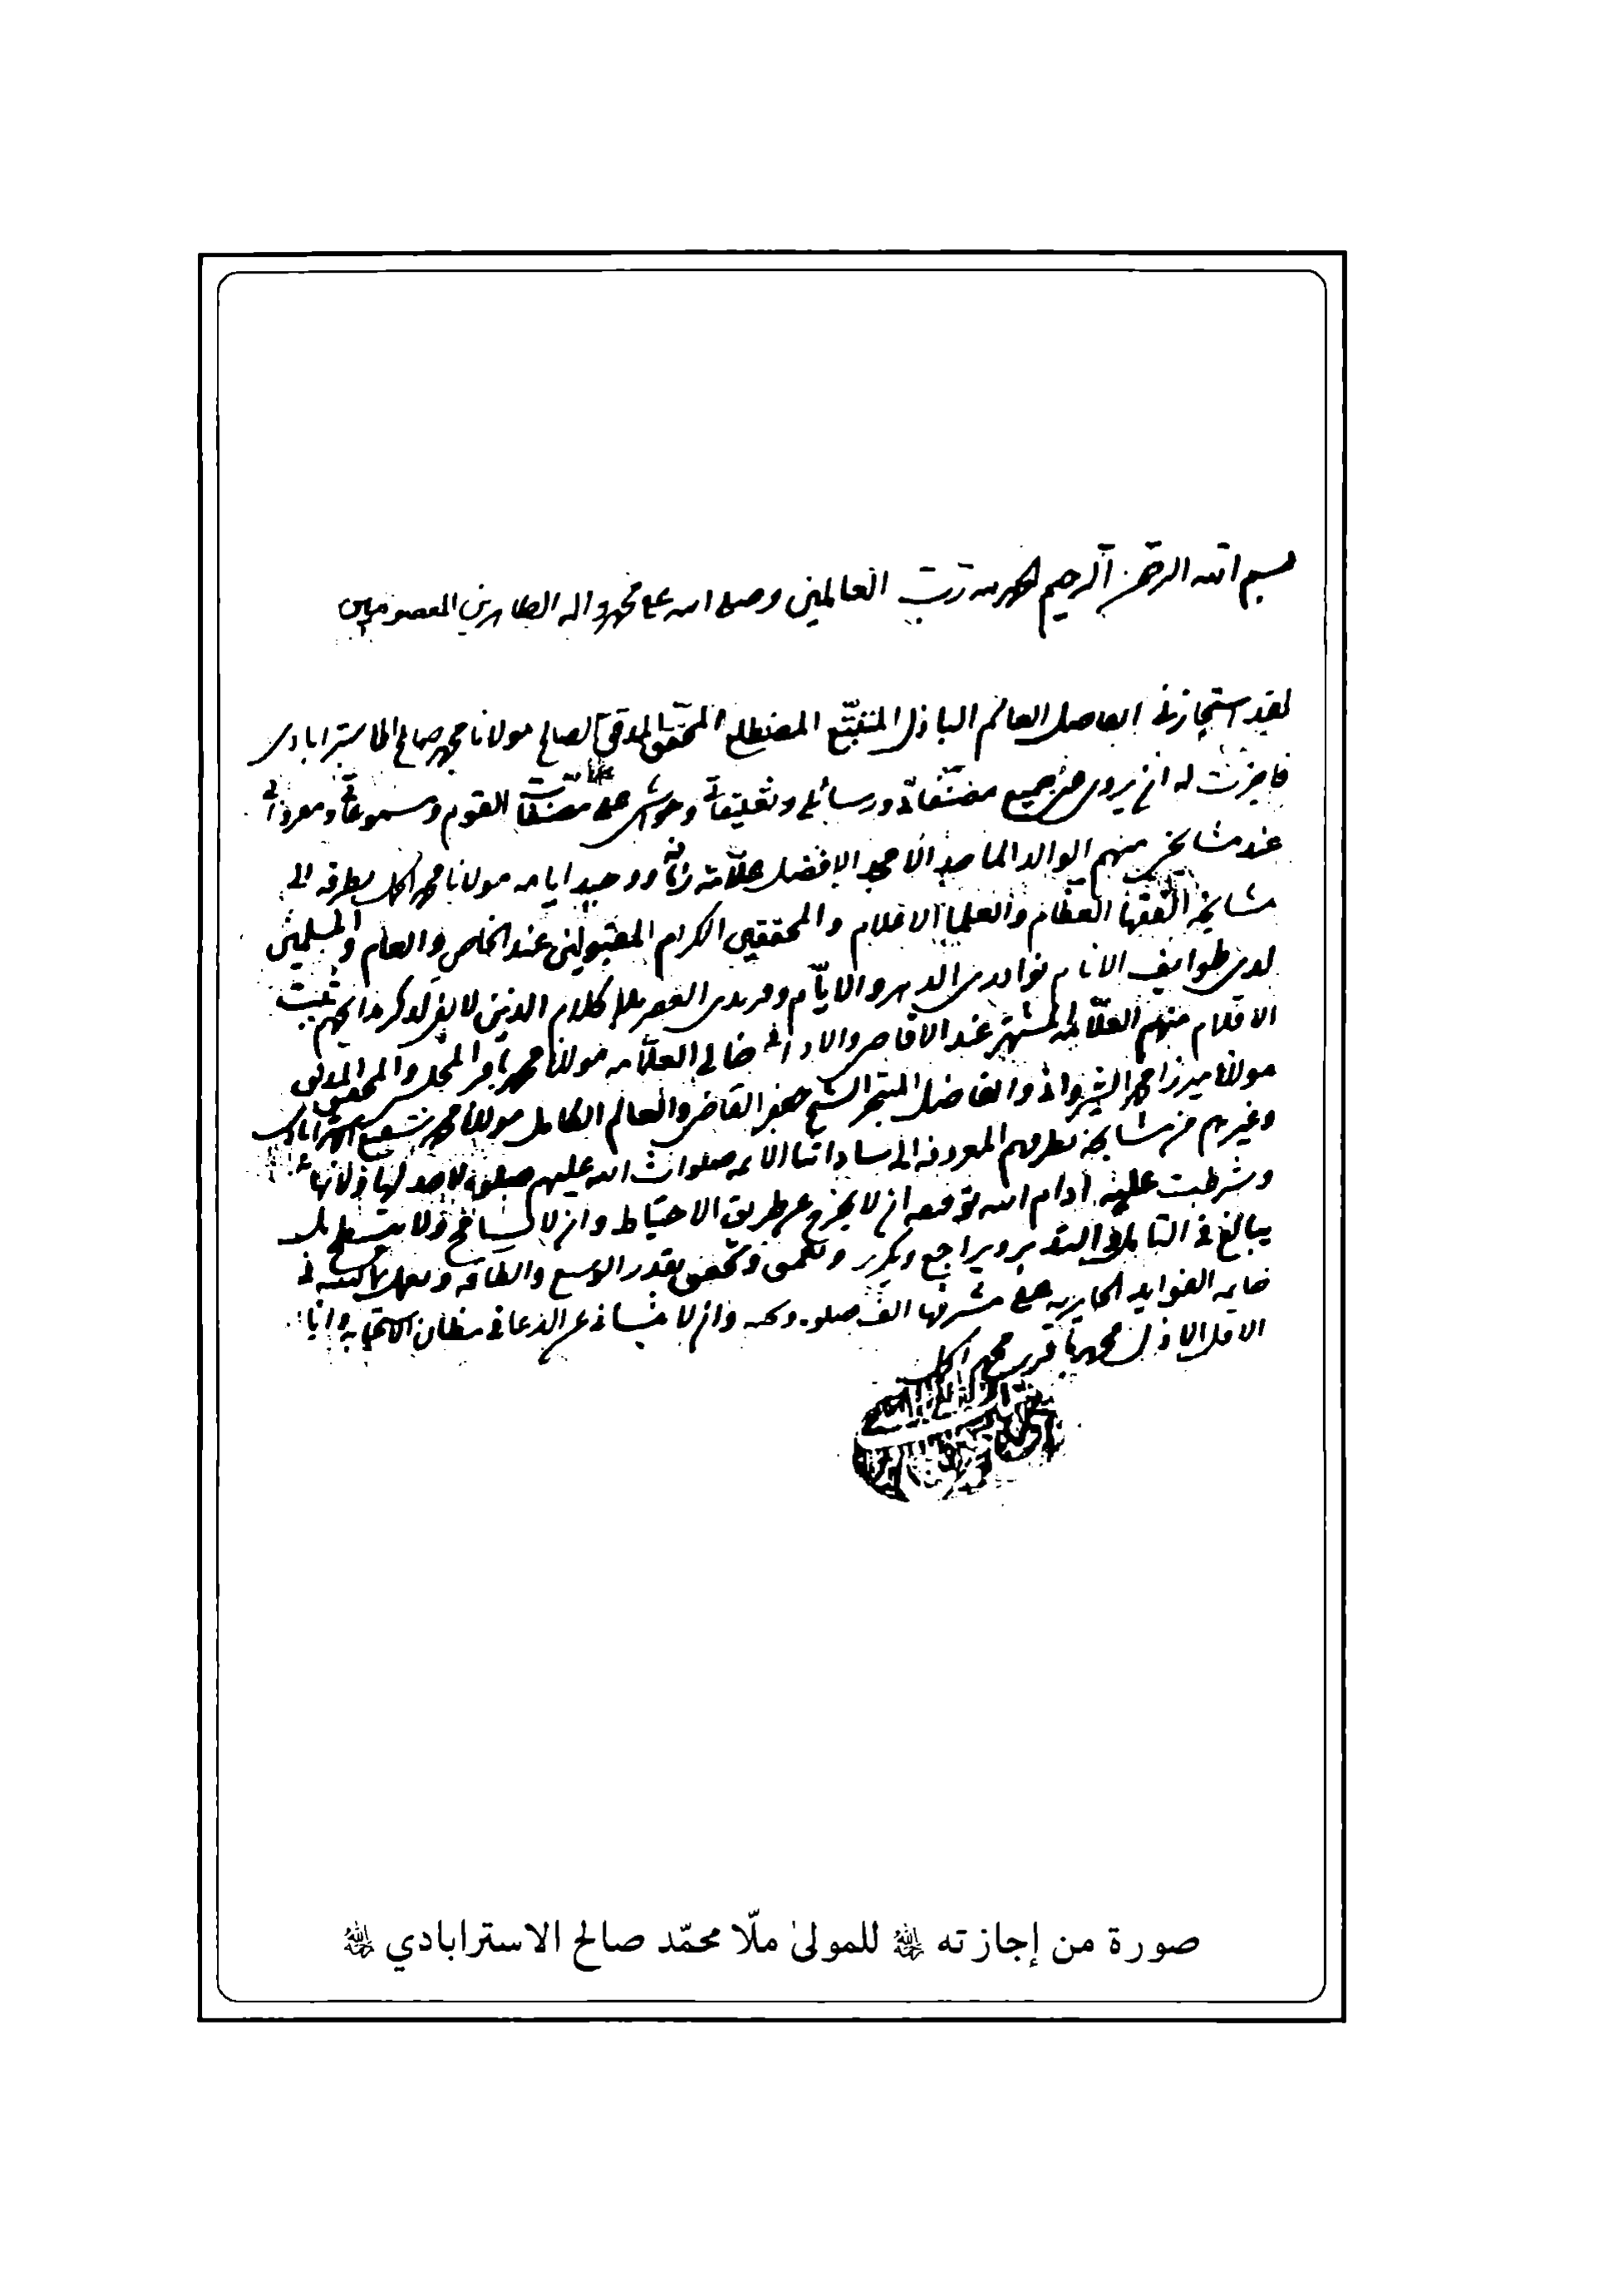 بسم الله الرحمن الرحيم الحمد لله رب العالمين وصلى الله على محمد واله الطاهرين المعصومين
لقد استجازني الفاضل العالم الباذل المتتبع المضطلع المحقق المدقق الصالح مولانا محمد صالح الاسترابادى
فاجزت له ان يروى عنى جميع مصنفاتى ورسائلى وتعليقاتى وحواشى على مصنفات القوم ومسموعاتى ومقرواتى
عند مشايخى منهم الوالد الماجد الامجد الافضل علامة زمانه ووحيد ايامه مولانا محمد اكمل بطرقه الى
مشايخه الفقها العظام والعلما الاعلام والمحققين الكرام المقبولين عند الخاص والعام والمسلمين
لدى طوايف الانام الدهر والايام وفريدى العصر الذين
الاقلام منهم العلامة المشتهر عند الاقاصى والادانى خالى العلامه مولانا محمد باقر المجلسى والمحقق المدقق
مولانا ميرزا محمد الشيروانى والفاضل المتبحر الشيخ جعفر القاضى والعالم الكامل مولانا محمد شفيع الاسترابادى
وغيرهم من مشايخه بطرقهم المعروفه الى ساداتنا الائمه صلوات الله عليهم
وشرطت عليه ادام الله توفيقه ان لا يخرج عن طريق الاحتياط وان لا يتسامح ولا بل
يبالغ فى التامل والتدبر ويراجع ويكرر بقدر الوسع والطاقه فى
الفوايد الحايريه على مشرفها الف صلوه وان لا ينسانى عن الدعا فى مظان الاستجابه وانا
الاقل الاذل محمد باقر بن محمد اكمل
صورة من إجازته للمولى ملّا محمّد صالح الاسترابادي